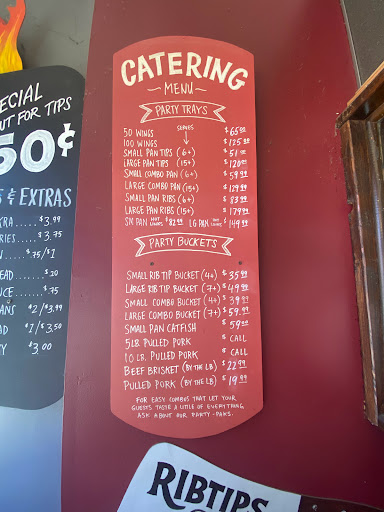 ECIAL
UT FOR TIPS
50¢
& EXTRAS
RA..... $3.99
RIES.... $3.75
.75/$1
EAD ..... $.20
NCE...... $.75
ANS $2/$3.99
AD $2/$3.50
Y $3.00
CATERING
MENU
PARTY TRAYS
SERVES
50 WINGS $65.00
100 WINGS $125.00
SMALL PAN TIPS (6+)
LARGE PAN TIPS (15+)
SMALL COMBO PAN (6+) $59.99
LARGE COMBO PAN (15+) $129.99
SMALL PAN RIBS (6+) $83.99
LARGE PAN RIBS (15+) $179.99
SM PAN HOT LINKS $82.99 LG PAN $149.99
PARTY BUCKETS
SMALL RIB TIP BUCKET (4+) $35.99
LARGE RIB TIP BUCKET (7+) $49.99
SMALL COMBO BUCKET (4+) $39.99
LARGE COMBO BUCKET (7+) $59.99
SMALL PAN CATFISH $59.00
5LB PULLED PORK $ CALL
10 LB. PULLED PORK $ CALL
BEEF BRISKET (BY THE LB) $22.99
PULLED PORK (BY THE LB) $19.99
FOR EASY COMBOS THAT LET YOUR
GUESTS TASTE A LITTLE OF EVERYTHING,
ASK ABOUT OUR PARTY-PAKS.
RIBTIPS